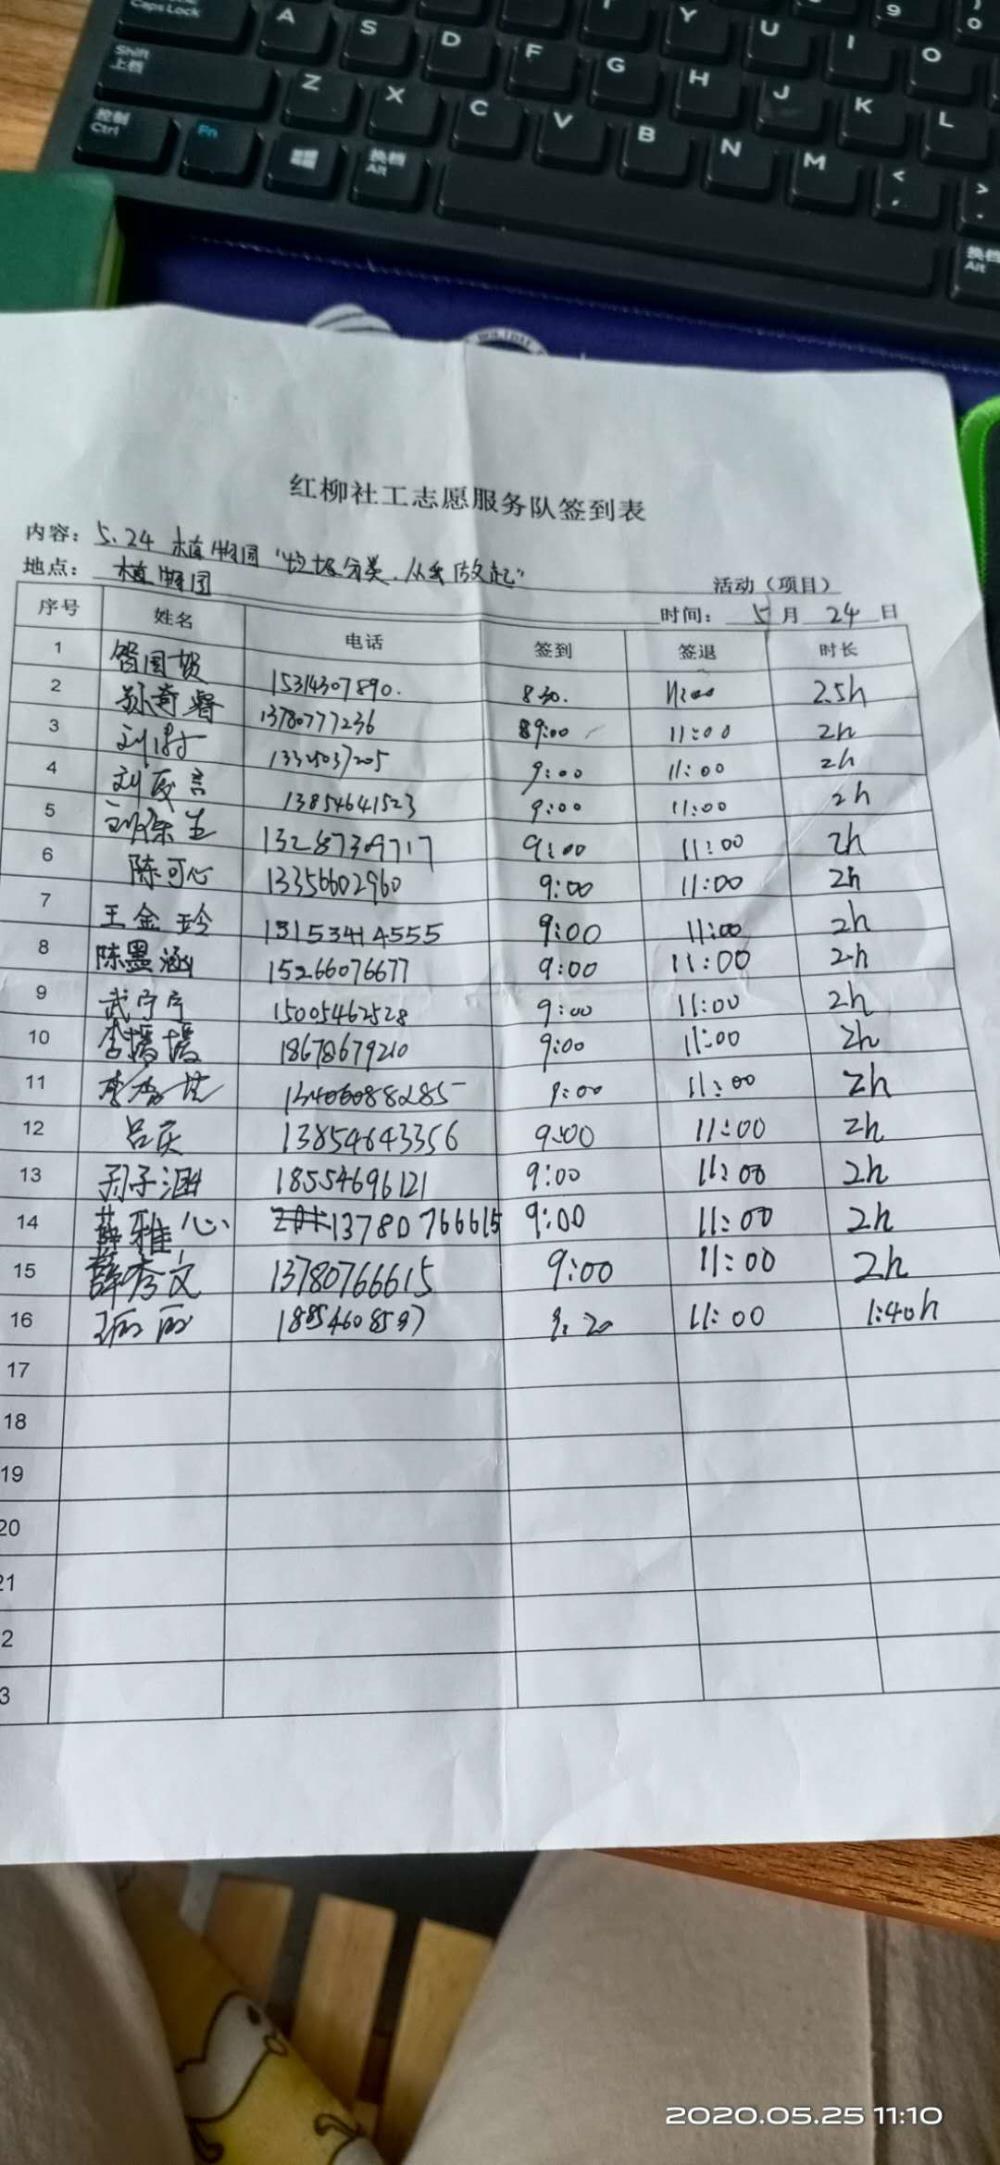 Caps Lock A S D F G H J K L
Y U I O 9 0
Shift 上档 Z X C V B N M < , > .
控制 Ctrl Fn 换档 Alt 换档 Alt
红柳社工志愿服务队签到表
内容： 5.24 植物园“垃圾分类，从我做起” 活动（项目）
地点： 植物园 时间： 5 月 24 日
序号 姓名 电话 签到 签退 时长
1 15314307890. 8:30. 11:00 2.5h
2 孙奇睿 13780777236 9:00 11:00 2h
3 9:00 11:00 2h
4 13854641523 9:00 11:00 2h
5 13287309717 9:00 11:00 2h
6 陈可心 13356602960 9:00 11:00 2h
7 王金玲 13153414555 9:00 11:00 2h
8 陈墨涵 15266076677 9:00 11:00 2h
9 武宁宁 15005462528 9:00 11:00 2h
10 李媛媛 18678679210 9:00 11:00 2h
11 9:00 11:00 2h
12 吕庆 13854643356 9:00 11:00 2h
13 孙子涵 18554696121 9:00 11:00 2h
14 薛雅心 13780766615 9:00 11:00 2h
15 薛秀文 13780766615 9:00 11:00 2h
16 18854608597 9:20 11:00 1:40h
17
18
19
20
21
2
3
2020.05.25 11:10